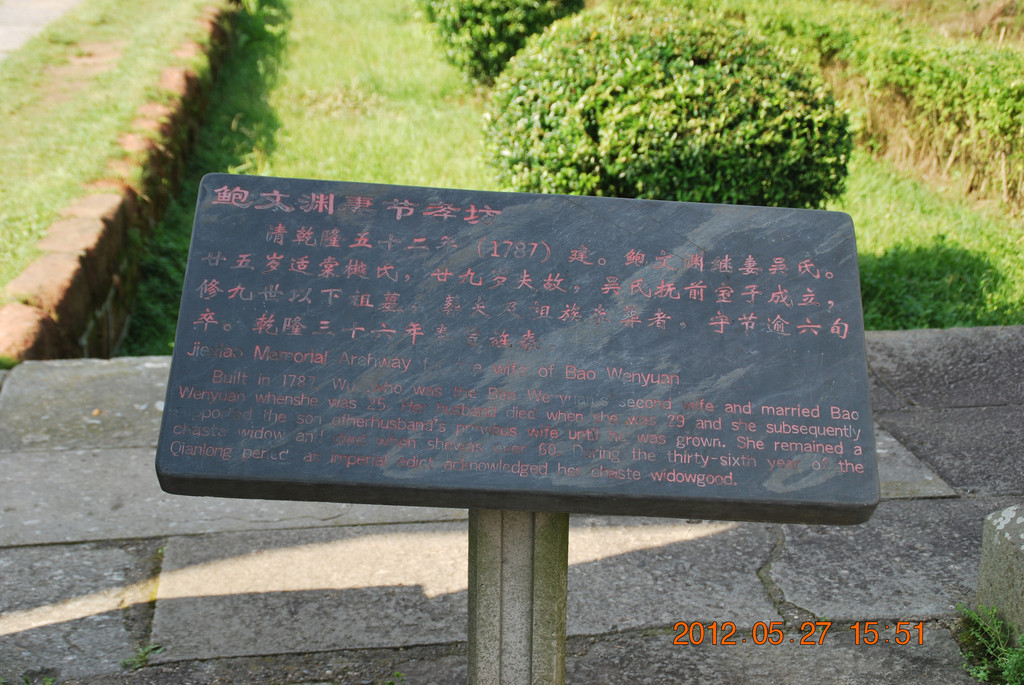 鲍文渊妻节孝坊
清乾隆五十二年（1787）建。鲍文渊继妻吴氏。
廿五岁适棠樾氏，廿九岁夫故，吴氏抚前室子成立，
修九世以下祖墓， 夫及祖族 者。守节逾六旬
卒。乾隆三十六年
Jiexiao Memorial Archway wife of Bao Wenyuan
Built in 1787, Wu, who was the Bao Wenyuan's second wife and married Bao
Wenyuan whenshe was 25. Her husband died when she was 29 and she subsequently
supported the son otherhusband's previous wife until he was grown. She remained a
chaste widow and when shewas over 60. During the thirty-sixth year of the
Qianlong an imperial edict acknowledged her chaste widowgood.
2012.05.27 15:51